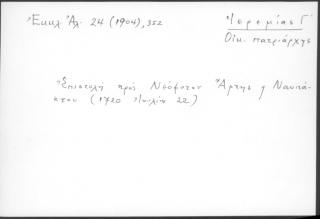 Ἐκκλ. Ἀλ. 24 (1904), 352
Ἱερεμίας Γ΄
Οἰκ. πατριάρχης
Ἐπιστολὴ πρὸς Νεόφυτον Ἄρτης ἢ Ναυπά-
κτου (1720 Ἰουλίου 22)